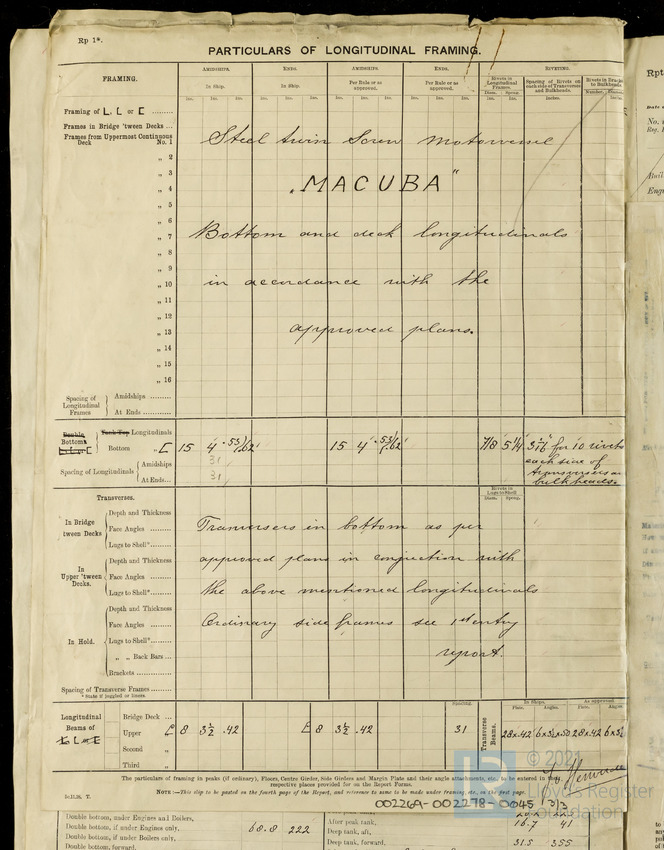 Rp 1*.
PARTICULARS OF LONGITUDINAL FRAMING.
FRAMING.
AMIDSHIPS. ENDS. AMIDSHIPS. ENDS. RIVETING.
In Ship. In Ship. Per Rule or as approved. Per Rule or as approved.
Rivets in Longitudinal Frames
Spacing of Rivets on each side of Transverses and Bulkheads.
Diam. Spcng. Inches.
Framing of L, L or [
Frames in Bridge 'tween Decks ...
Frames from Uppermost Continuous Deck No. 1
Steel twin Screw motorvessel
„ 2
„ 3
„ 4
„MACUBA"
„ 5
„ 6
„ 7
Bottom and deck longitudinals
„ 8
„ 9
„ 10
in accordance with the
„ 11
„ 12
„ 13
approved plans.
„ 14
„ 15
„ 16
Spacing of Longitudinal Frames
Amidships
At Ends
Double Bottoms
Tank Top Longitudinals
Bottom „ [ 15 4 .53/.62 15 4 .53/.62 7/8 5 1/4 for 10 rivets
each side of
transverses an
bulkheads.
Spacing of Longitudinals
Amidships 31
At Ends 31
Transverses.
Rivets in Lugs to Shell
Diam. Spcng.
In Bridge 'tween Decks
Depth and Thickness
Face Angles
Lugs to Shell*
Tranversers in bottom as per
In Upper 'tween Decks.
Depth and Thickness
Face Angles
Lugs to Shell*
approved plans in conjuction with
the above mentioned longitudinals
In Hold.
Depth and Thickness
Face Angles
Lugs to Shell*
„ „ Back Bars
Brackets
Ordinary side frames see 1st entry
report.
Spacing of Transverse Frames
* State if joggled or liners.
Longitudinal Beams of L, L or [
Bridge Deck
Upper „ [ 8 3½ .42 [ 8 3½ .42 31
Second „
Third „
Spacing.
Transverse Beams.
In Ships. As approved
Plate. Angles. Plate. Angles.
28x.42 28x.42
The particulars of framing in peaks (if ordinary), Floors, Centre Girder, Side Girders and Margin Plate and their angle attachments, etc., to be entered in the
respective places provided for on the Report Forms.
NOTE:—This slip to be pasted on the fourth page of the Report, and reference to same to be made under framing, etc., on the first page.
© 2021
Lloyd's Register
Foundation
002269-002278-0045 1/3
Double bottom, under Engines and Boilers,
Double bottom, if under Engines only, 68.8 222
Double bottom, if under Boilers only,
Double bottom, forward,
After peak tank, 16.7 41
Deep tank, aft,
Deep tank, forward, 31.5 355